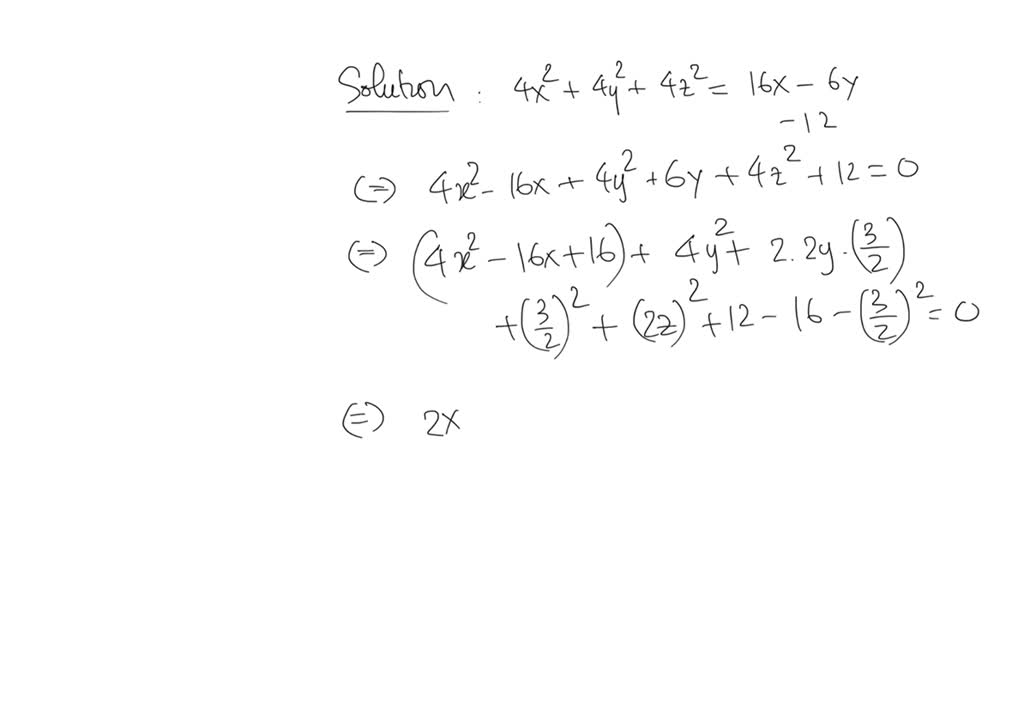 Solution : 4x² + 4y² + 4z² = 16x − 6y
−12
(=) 4x² − 16x + 4y² + 6y + 4z² + 12 = 0
(=) (4x² − 16x + 16) + 4y² + 2.2y.(3/2)
+ (3/2)² + (2z)² + 12 − 16 − (3/2)² = 0
(=) 2x